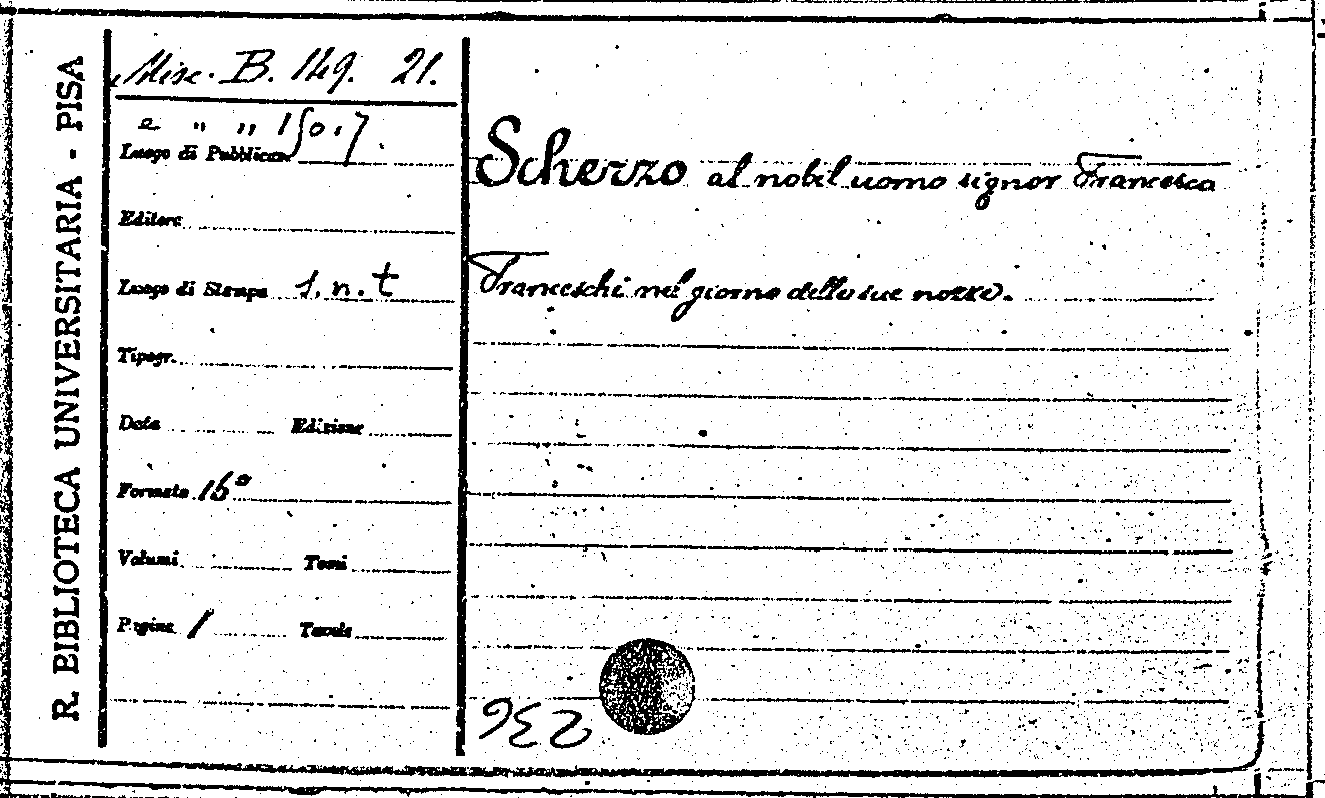 R. BIBLIOTECA UNIVERSITARIA - PISA
Misc. B. 149. 21.
e " " 150.7.
Luogo di Pubblicaz.
Editore
Luogo di Stampa s.n.t
Tipogr.
Data Edizione
Formato 16°
Volumi Tomi
Pagine 1 Tavole
Scherzo al nobil uomo signor Francesco
Franceschi nel giorno delle sue nozze.
236